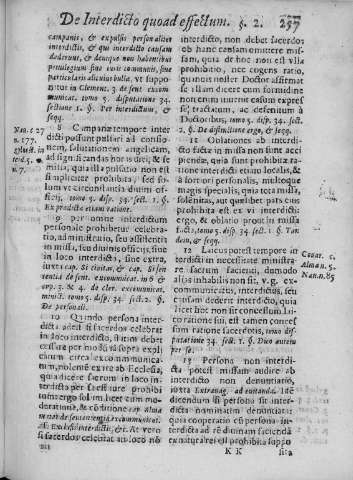 De Interdicto quoad effectum. §. 2. 257
campanis, & expulsis personaliter
interdictis, & qui interdicto causam
dederunt, & denique non habentibus
privilegium sive iuris communis, sive
particularis alicuius bullæ, ut suppo-
nitur in Clement. 3. de sent. excom
municat. tomo 5. disputatione 34.
sectione 1. §. Per interdictum, &
seqq.
8 Campanæ tempore inter
dicti possunt pulsari ad concio-
nem, salutationem angelicam,
ad significandas horas diei; & si-
mili, quia illa pulsatio non est
simpliciter prohibita, sed so-
lum ve circunstantia divini of-
ficij, tomo 5. disp. 34. sect. 1. §.
Ex prædicto etiam ratione.
9 per omne interdictum
personale prohibetur celebra-
tio, ad ministratio, seu assistentia
in missa, seu divinis officijs, sive
in loco interdicto, sine extra,
iuxta cap. Si civitas, & cap. Si sen
tentia de sent. excomunicat. in 6 &
cap. 3. & 4. de cler. excommunicat.
ministr. tomo 5. disp. 34. sect. 2. §.
De personali.
10 Quando persona inter-
dicta adest si sacerdos celebrat
in loco interdicto, si ritum debet
cessare per modum supra expli
citum circa excommunica-
tum, nolente exire ab Ecclesia,
quia dicere sacrum in loco in-
terdicto per se est iure prohibi
tum ergo solum licet cum mode-
deratione, & conditione cap. Alma
mater de sententia excommunicat.
Excludit interdictis, &c. At vero
si sacerdos celebrat in loco no
interdicto, non debet sacerdos
ob hanc causam omittere mis-
sam, quia de hoc non est ulla
prohibitio, nec cogens ratio,
quamvis noster Doctor affirmet
se non illam dicere cum formidine
non enim invenit casum expres
se tractatum, ac definitum à
Doctoribus, tomo 5. disp. 34. sect.
2. §. De distinctione ergo, & seqq.
11 Oblationes ab interdi-
cto factæ in missa non sunt acci
piendæ, quia sunt prohibitæ ra-
tione interdicti etiam localis, &
à fortiori personalis, nulloque
magis specialis, quia tota missa,
solenitas, aut quælibet pars eius
prohibita est ex vi interdicti:
ergo, & oblatio prout in missa
sit, tomo 5. disp. 34. sect. 1. §. Tan
dem, & seqq.
12 Laicus potest tempore in
terdicti in necessitate ministra-
re sacrum facienti, dummodo
alias inhabilis non sit, v. g. ex-
communicatus, interdictus, seu
eiusdem interdicti causa, quia
licet hoc non sit concessum Lai-
co ratione sui, est tamen conces
sum ratione sacerdotis, tomo dis-
putatione 34. sect. 1. §. Duo autem
per se.
13 Persona non interdi-
cta potest missam audire ab
interdicto non denuntiato,
iuxta Extravag. ad evitanda. Idē
dicendum si persona non sit in-
terdicta, sed solum locus; quia
quia cooperatio cum persona in-
terdicta ante re ad divinam faciendā
ex natura rei est prohibita suppo
Nau. c. 27
n. 177.
tom. 5.
n. 7.
Covar. c.
Alma n. 5.
Nau. n. 85
K K
sita